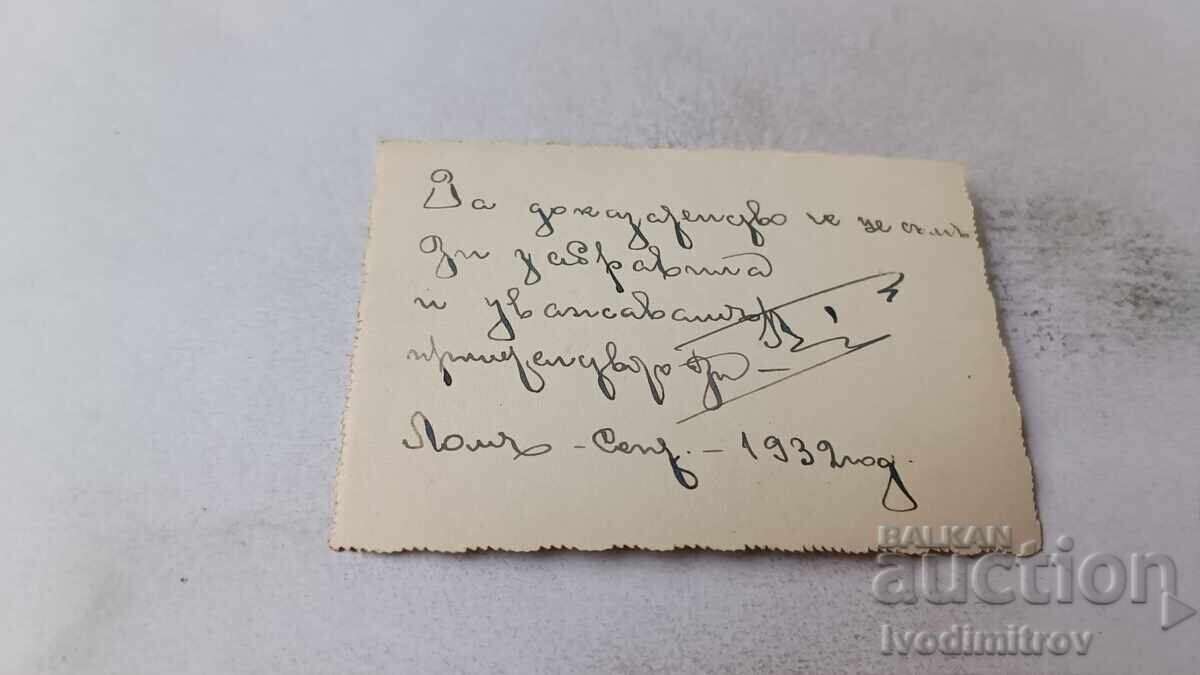 За доказателство че не съмъ
Ви забравила
и уважавамъ
приятелството Ви –
Ломъ – Септ. – 1932 год.
BALKAN
auction
Ivodimitrov